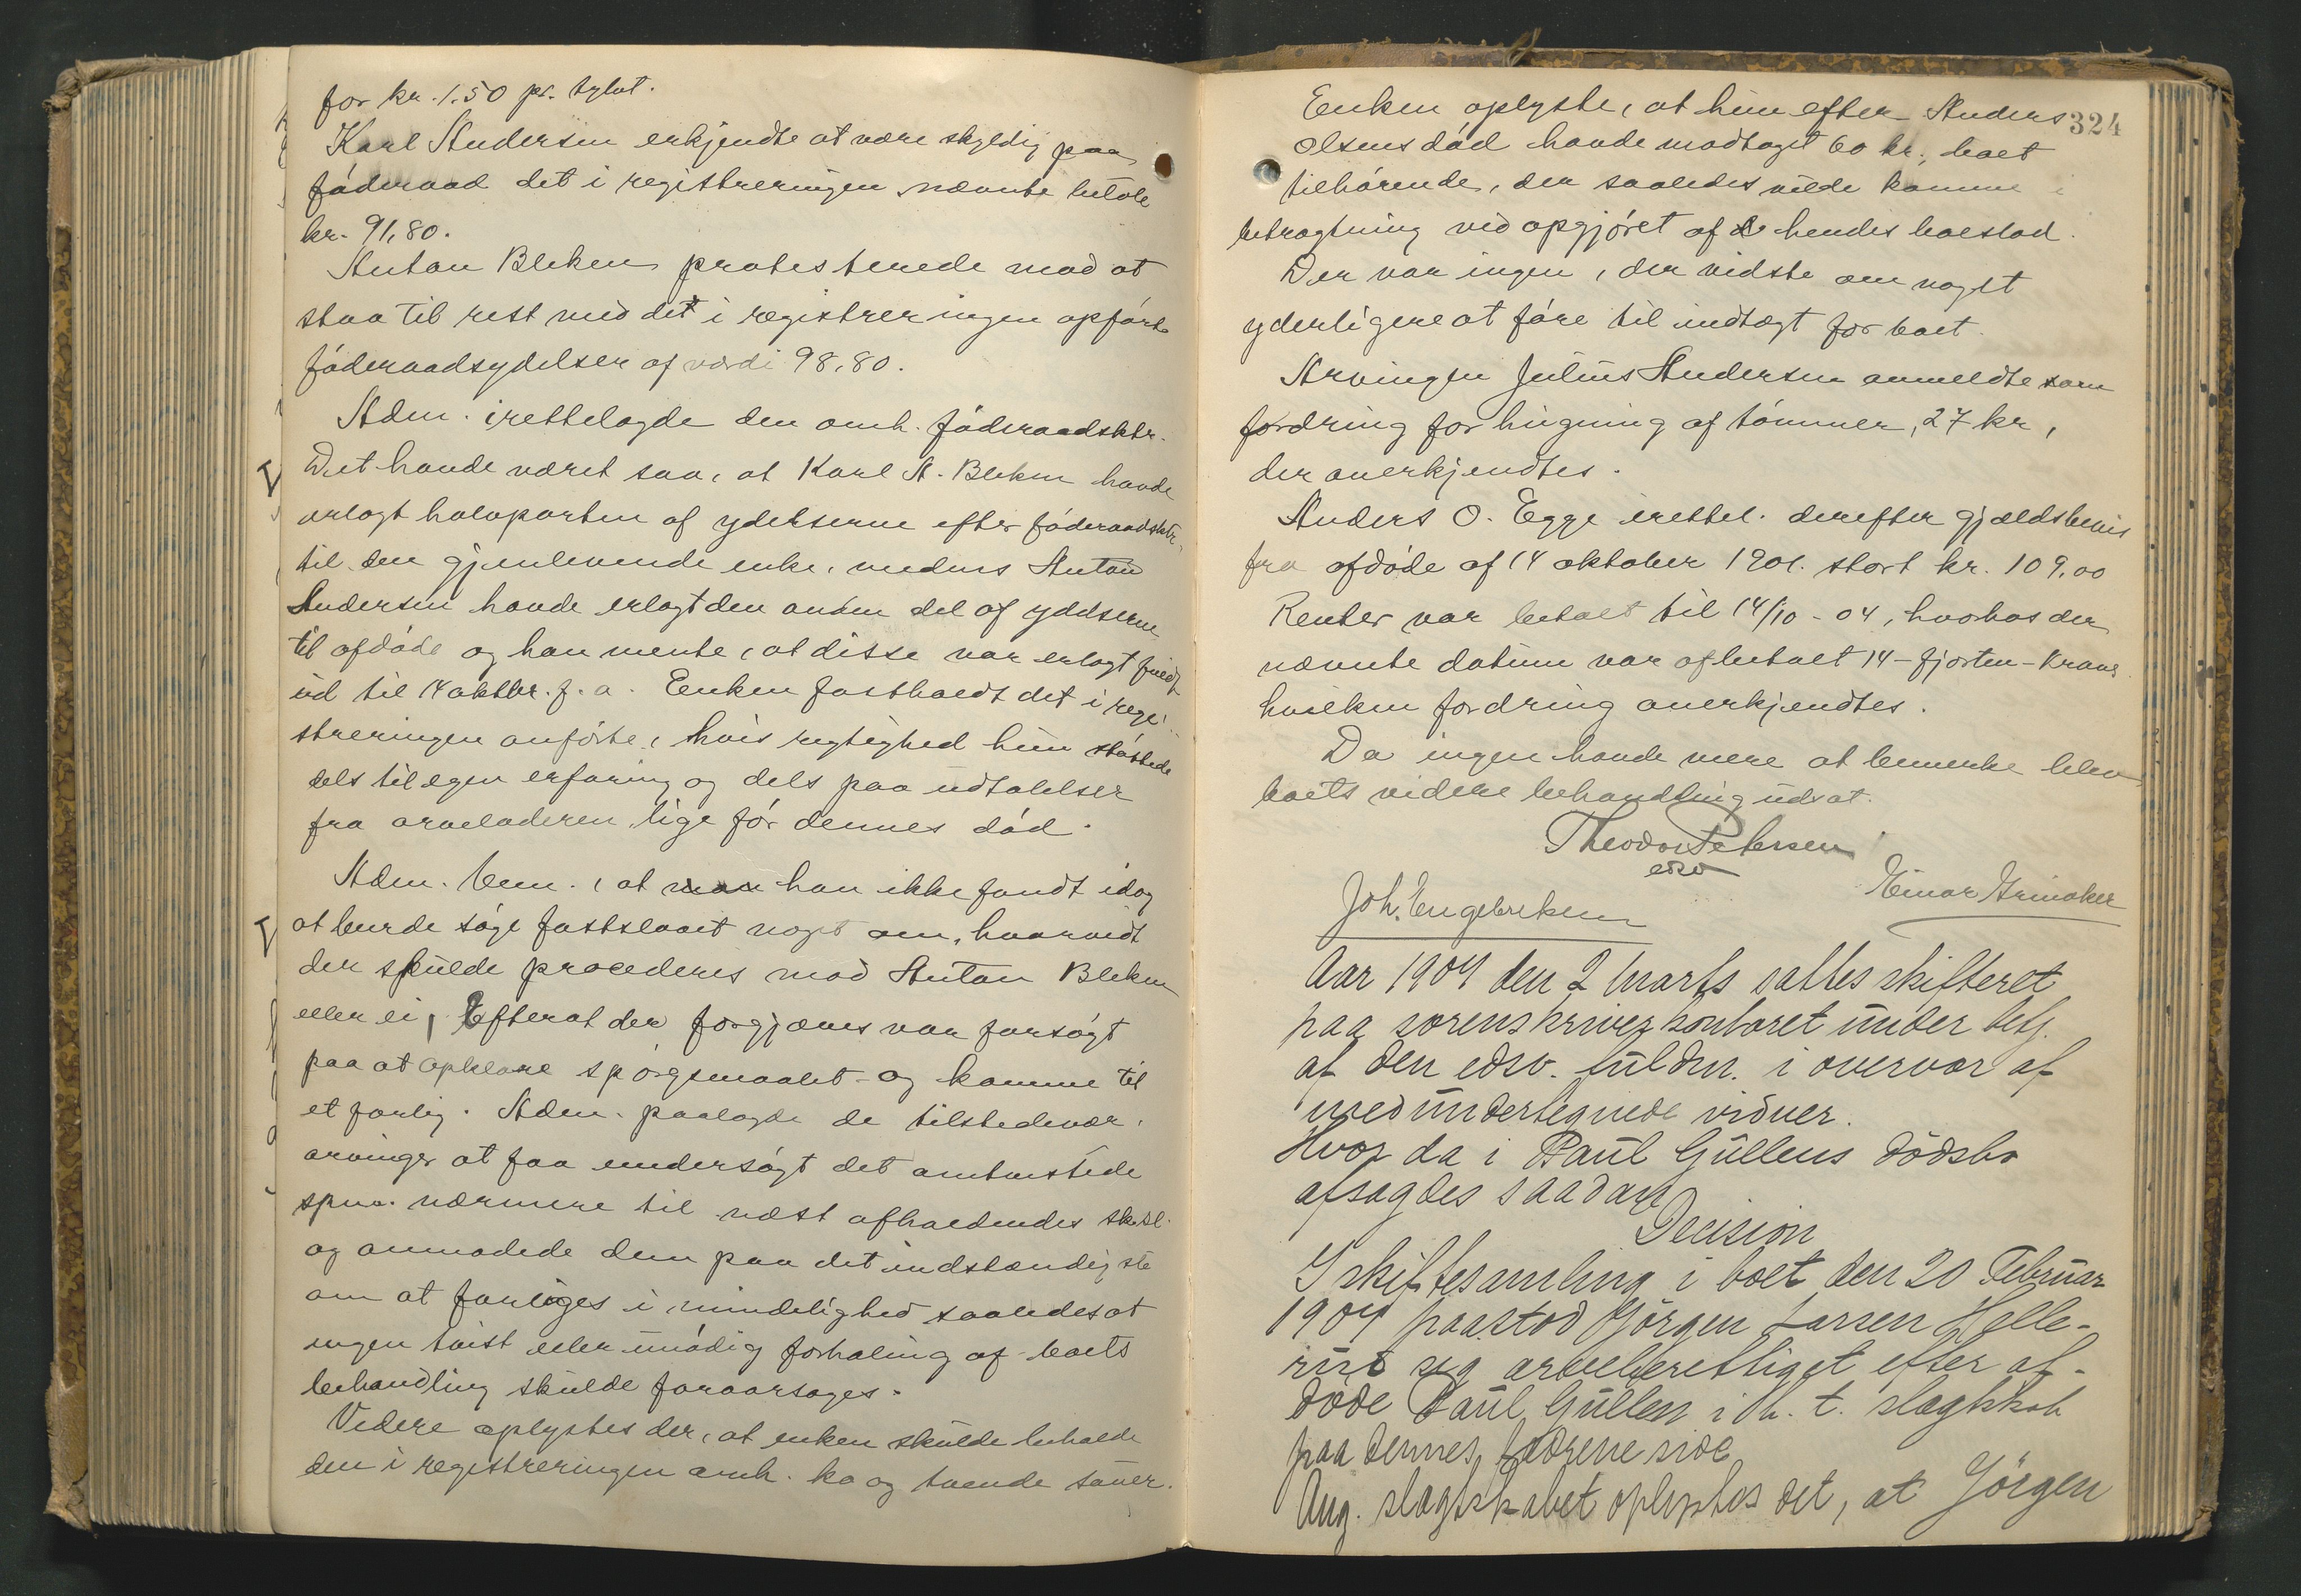 for kr. 1.50 pr. tylvt.
Karl Andersen erkjendte at være skyldig paa
föderaad det i registreringen nævnte beløb
kr. 91,80.
Anton Bleken protesterede mod at
staa til rest med det i registreringen opförte
föderaadsydelser af værdi 98,80.
Adm. irettelagde den omh. föderaadsktr.
Det havde været saa, at Karl A. Bleken havde
erlagt halvparten af ydelserne efter föderaadsktr.
til den gjenlevende enke, medens Anton
Andersen havde erlagt den anden del af ydelserne
til afdöde og han mente, at disse var erlagt fuldt
ud til 14 oktbr. f. a. Enken fastholdt det i regi-
streringen anförte, hvis rigtighed hun støttede
dels til egen erfaring og dels paa udtalelser
fra arveladeren lige för dennes död.
Adm. bem., at man han ikke fandt idag
at burde søge fastslaaet noget om, hvorvidt
der skulde procederes mod Anton Bleken
eller ei, Efterat der forgjæves var forsögt
paa at opklare spörgsmaalet og komme til
et forlig. Adm. paalagde de tilstedevær.
arvinger at faa undersögt det omtvistede
spm. nærmere til næst afholdendes sksl.
og anmodede dem paa det indstændigste
om at forliges i mindelighed saaledes at
ingen tvist eller unödig forhaling af boets
behandling skulde foraarsages.
Videre oplystes der, at enken skulde beholde
den i registreringen omh. ko og tvende sauer.
324
Enken oplyste, at hun efter Anders
Olsens död havde modtaget 60 kr., boet
tilhörende, der saaledes vilde komme i
betragtning ved opgjöret af hendes boeslod.
Der var ingen, der vidste om noget
yderligere at före til indtægt for boet.
Arvingen Julius Andersen anmeldte som
fordring for hugning af tömmer, 27 kr,
der anerkjendtes.
Anders O. Egge irettel. derefter gjældsbevis
fra afdöde af 14 oktober 1901. stort kr. 109,00
Renter var betalt til 14/10 - 04, hvorhos der
nævnte datum var afbetalt 14 - fjorten - kroner
hvilken fordring anerkjendtes.
Da ingen havde mere at bemerke blev
boets videre behandling udsat.
Theodor Petersen
edsv
Joh. Engebretsen
Einar Grinaker
Aar 1904 den 2 Marts sattes skifteret
paa sorenskriverkontoret under betj.
af den edsv. fuldm. i overvær af
medundertegnede vidner.
Hvor da i Paul Gullens dödsbo
afsagdes saadan
Decision
I skiftesamling i boet den 20 Februar
1904 paastod Jörgen Larsen Helle-
rud sig arveberettiget efter af-
döde Paul Gullen i h. t. slægtskab
paa dennes fædrene side
Ang. slægtskabet oplystes det, at Jörgen